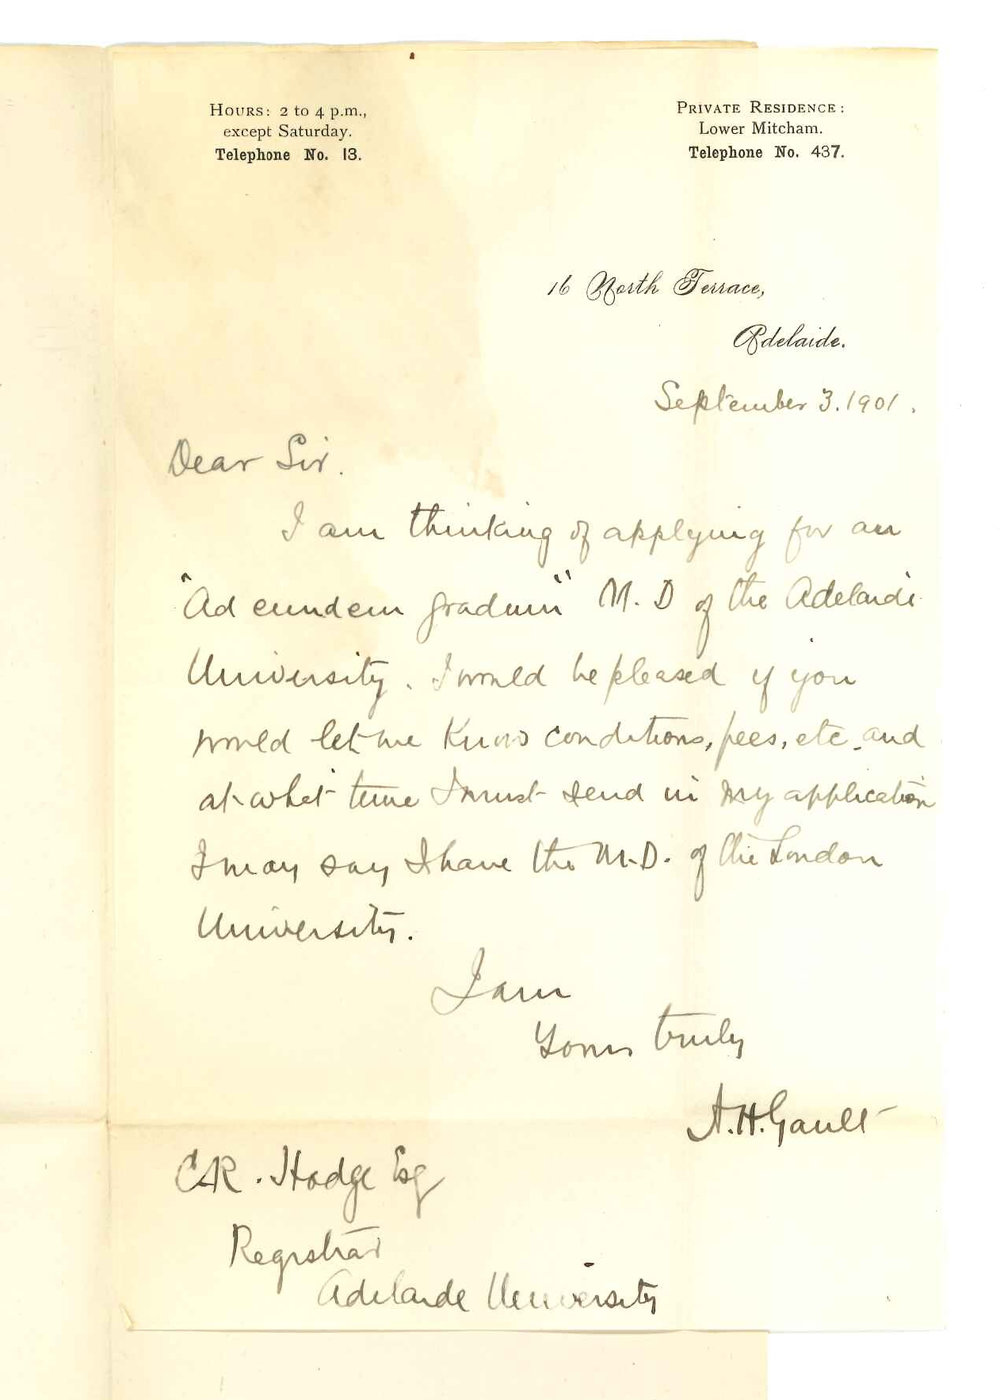 HOURS: 2 to 4 p.m.,
except Saturday.
Telephone No. 13.
PRIVATE RESIDENCE:
Lower Mitcham.
Telephone No. 437.
16 North Terrace,
Adelaide.
September 3. 1901.
Dear Sir.
I am thinking of applying for an
"Ad eundem gradum" M.D of the Adelaide
University. I would be pleased if you
would let me know conditions, fees, etc. and
at what time I must send in my application
I may say I have the M.D. of the London
University.
I am
Yours truly
A.H. Gault
C.R. Hodge Esq
Registrar
Adelaide University